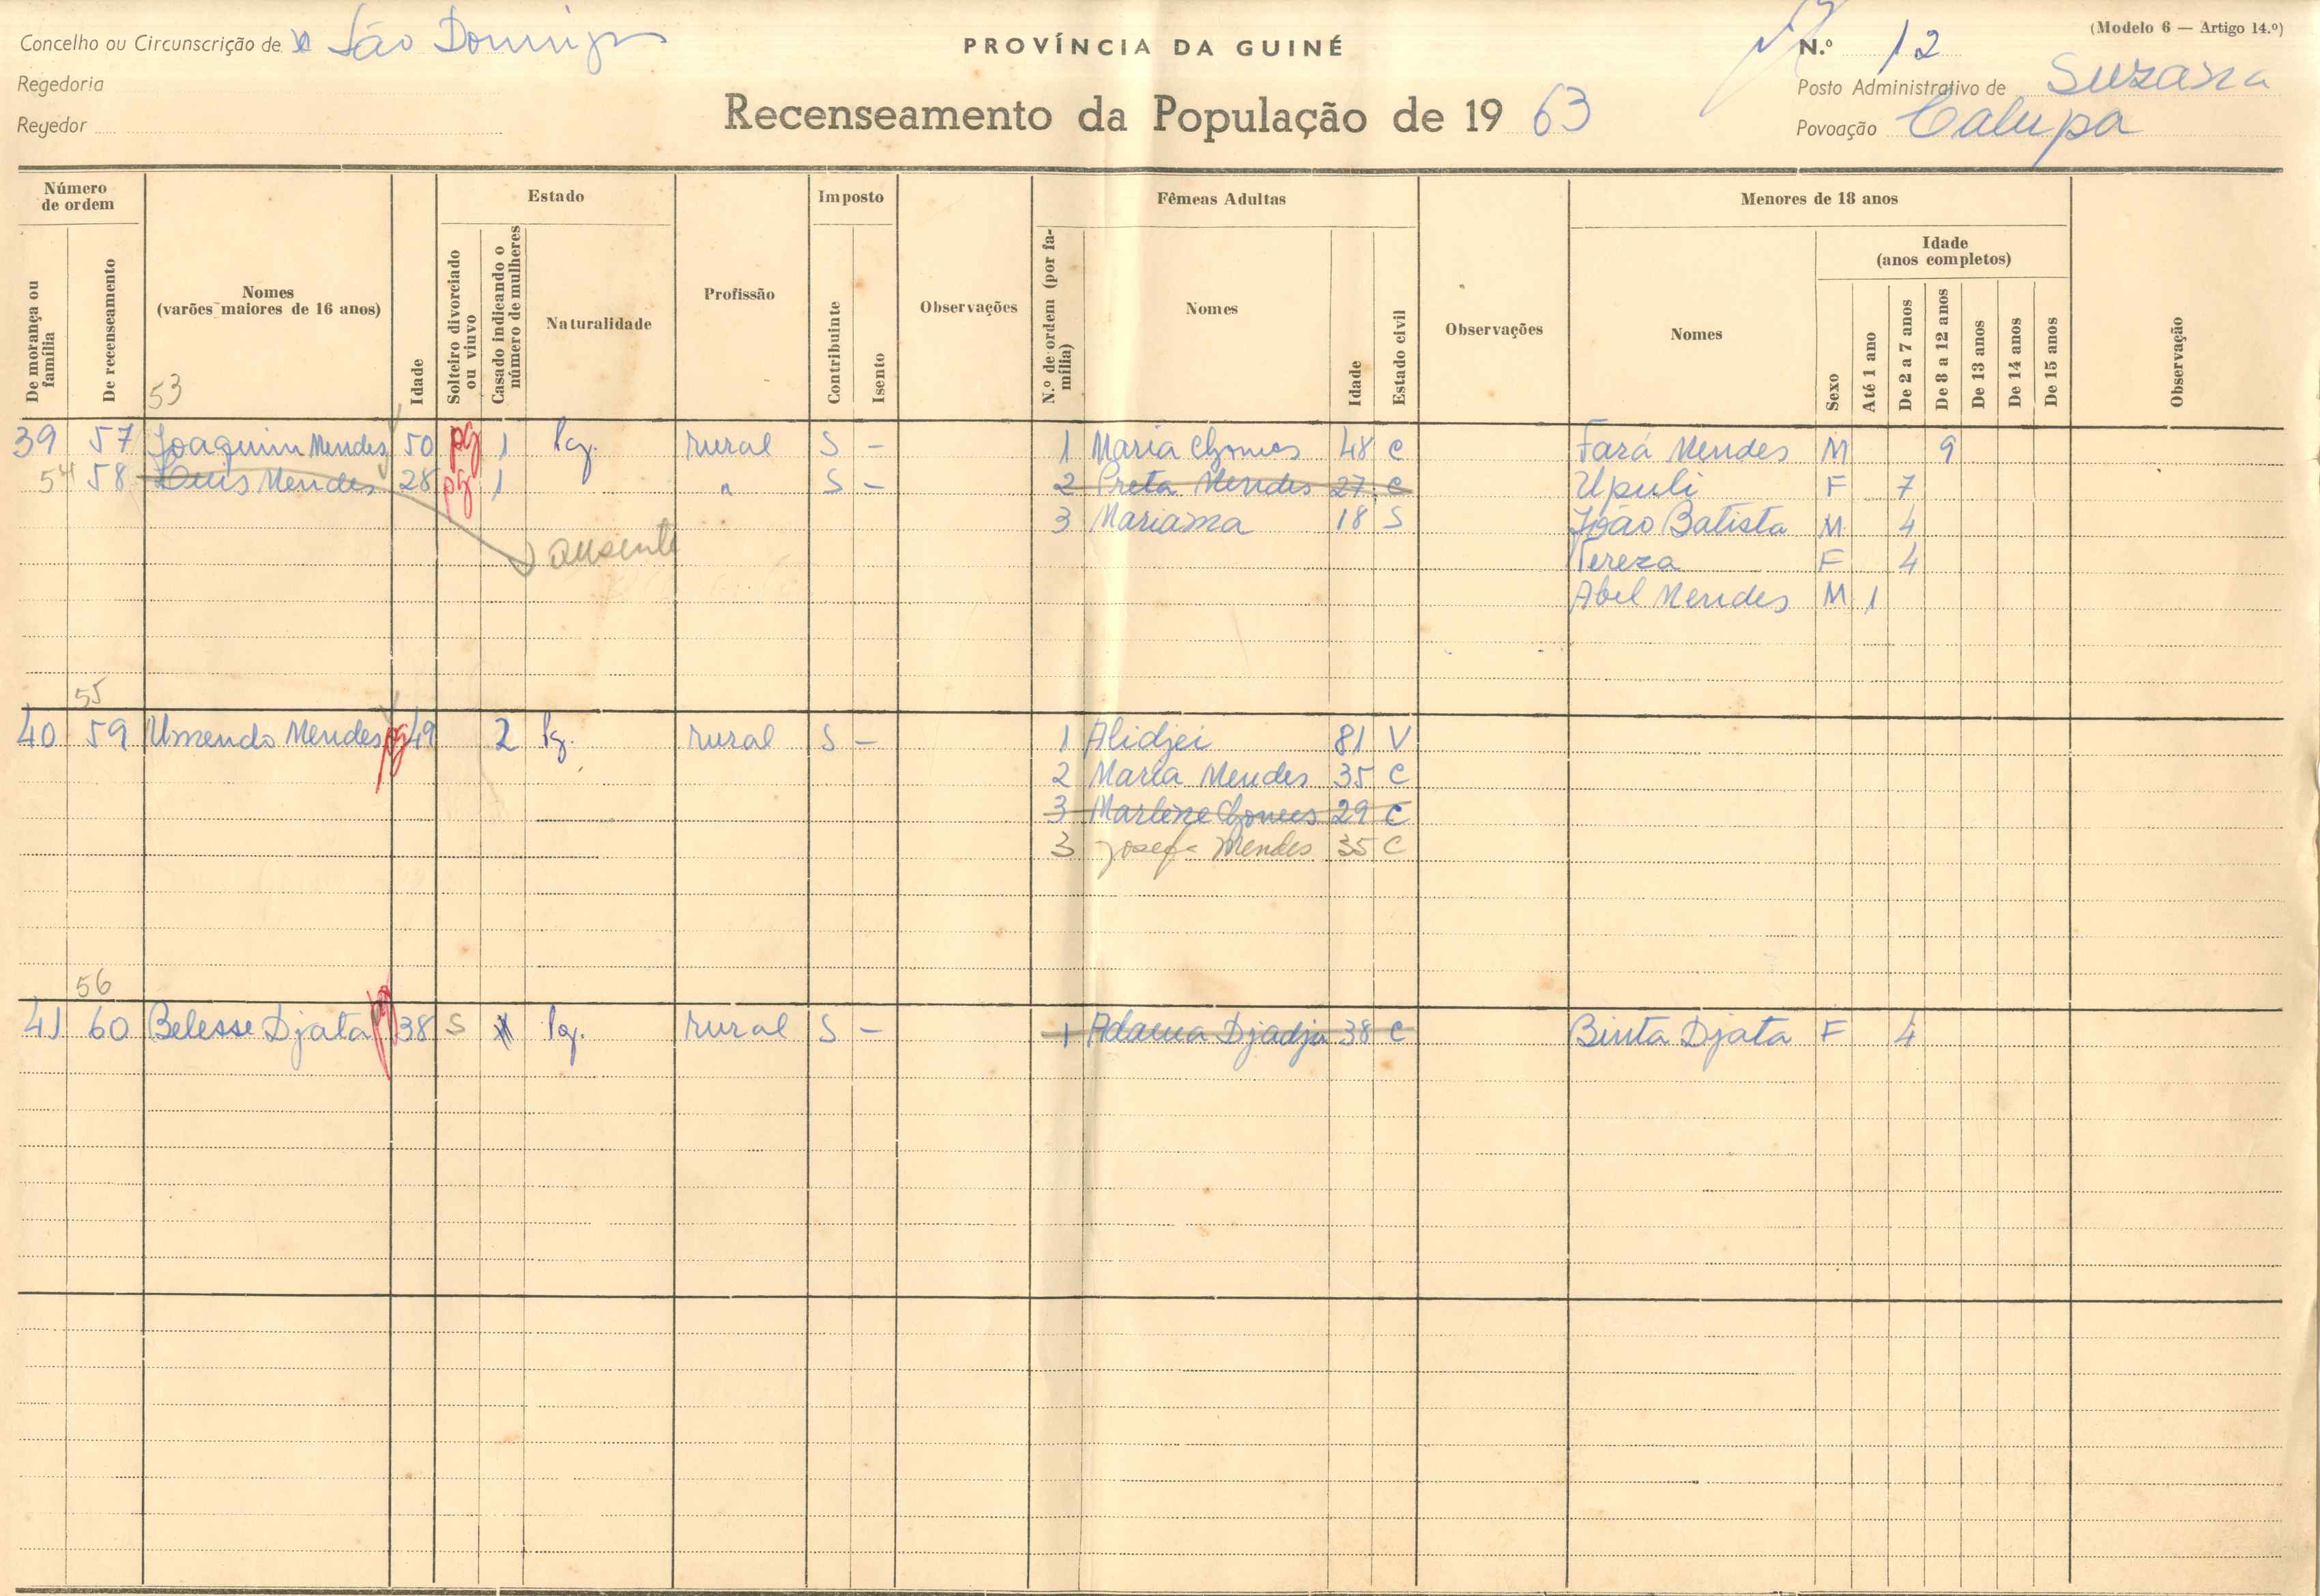 Concelho ou Circunscrição de São Domingos
PROVÍNCIA DA GUINÉ
(Modelo 6 — Artigo 14.º)
N.º 12
Regedoria
Posto Administrativo de Suzana
Regedor
Recenseamento da População de 1963
Povoação Calupa
Número de ordem
Estado
Imposto
Fêmeas Adultas
Menores de 18 anos
De morança ou família
De recenseamento
Nomes (varões maiores de 16 anos)
Idade
Solteiro divorciado ou viuvo
Casado indicando o número de mulheres
Naturalidade
Profissão
Contribuinte
Isento
Observações
N.º de ordem (por família)
Nomes
Idade
Estado civil
Observações
Nomes
Sexo
Idade (anos completos)
Até 1 ano
De 2 a 7 anos
De 8 a 12 anos
De 13 anos
De 14 anos
De 15 anos
Observação
53
39 57 Joaquim Mendes 50 pg 1 Pg. rural S - 1 Maria Gomes 48 C Fará Mendes M 9
54 58 Luis Mendes 28 pg 1 " S - 2 Preta Mendes 27 C Upuli F 7
3 Mariama 18 S João Batista M 4
ausente Tereza F 4
Abel Mendes M 1
55
40 59 Umendo Mendes pg 49 2 Pg. rural S - 1 Alidjei 81 V
2 Maria Mendes 35 C
3 Marlene Gomes 29 C
3 Josefa Mendes 35 C
56
41 60 Belesse Djata pg 38 S Pg. rural S - 1 Adama Djadju 38 C Binta Djata F 4